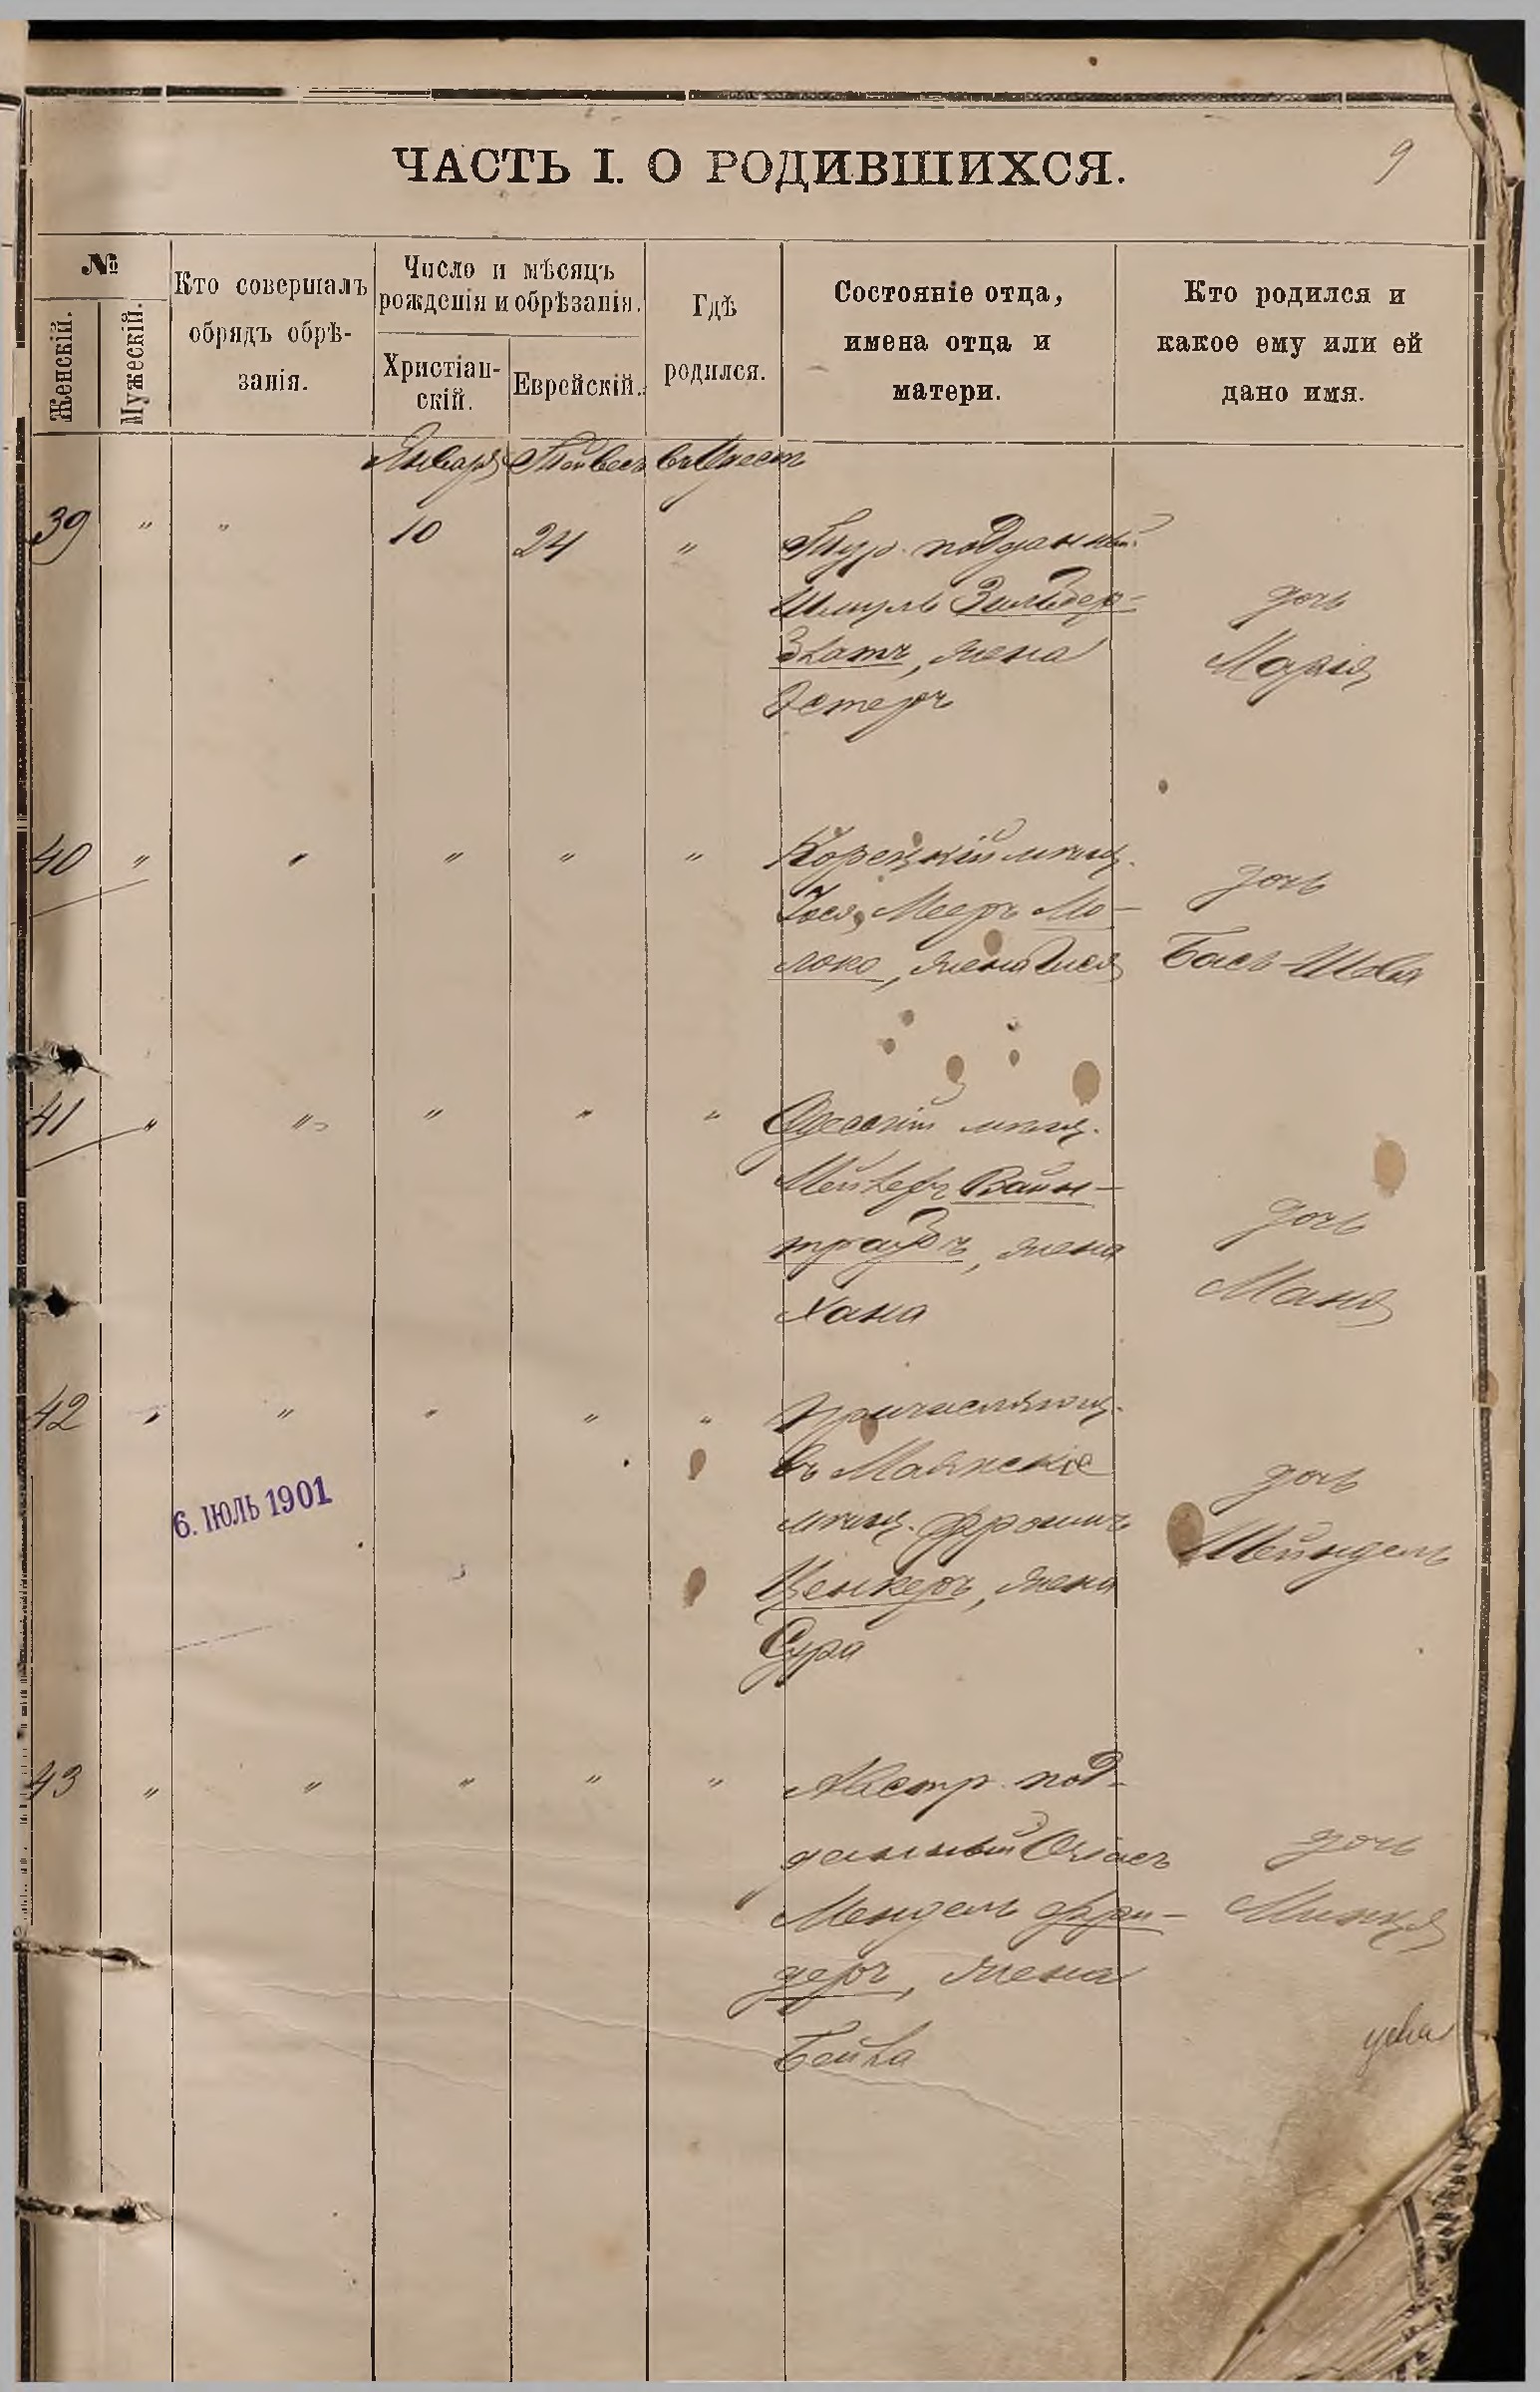 ЧАСТЬ I. О РОДИВШИХСЯ.
9
№
Женскій.
Мужескій.
Кто совершалъ
обрядъ обрѣ-
занія.
Число и мѣсяцъ
рожденія и обрѣзанія.
Христіан-
скій.
Еврейскій.
Гдѣ
родился.
Состояніе отца,
имена отца и
матери.
Кто родился и
какое ему или ей
дано имя.
Января Тейвесъ въ Одессѣ
39 " " 10 24 " Тур. подданный
Шмуль Зильбер-
златъ, жена
Эстеръ
дочь
Марія
40 " " " " " Корецкій мѣщ.
Іося Мееръ Мо-
локо, жена Эися
дочь
Бася-Шева
41 " " " " " Одесскій мѣщ.
Мейлехъ Вайн-
траубъ, жена
Хана
дочь
Маня
42 " " " " " Причисляющ.
въ Маякскіе
мѣщ. Фроимъ
Ценкеръ, жена
Сура
дочь
Шейндель
6. ІЮЛЬ 1901
43 " " " " " Австр. под-
данный
Мендель Фри-
деръ, жена
Бейла
дочь
Минця